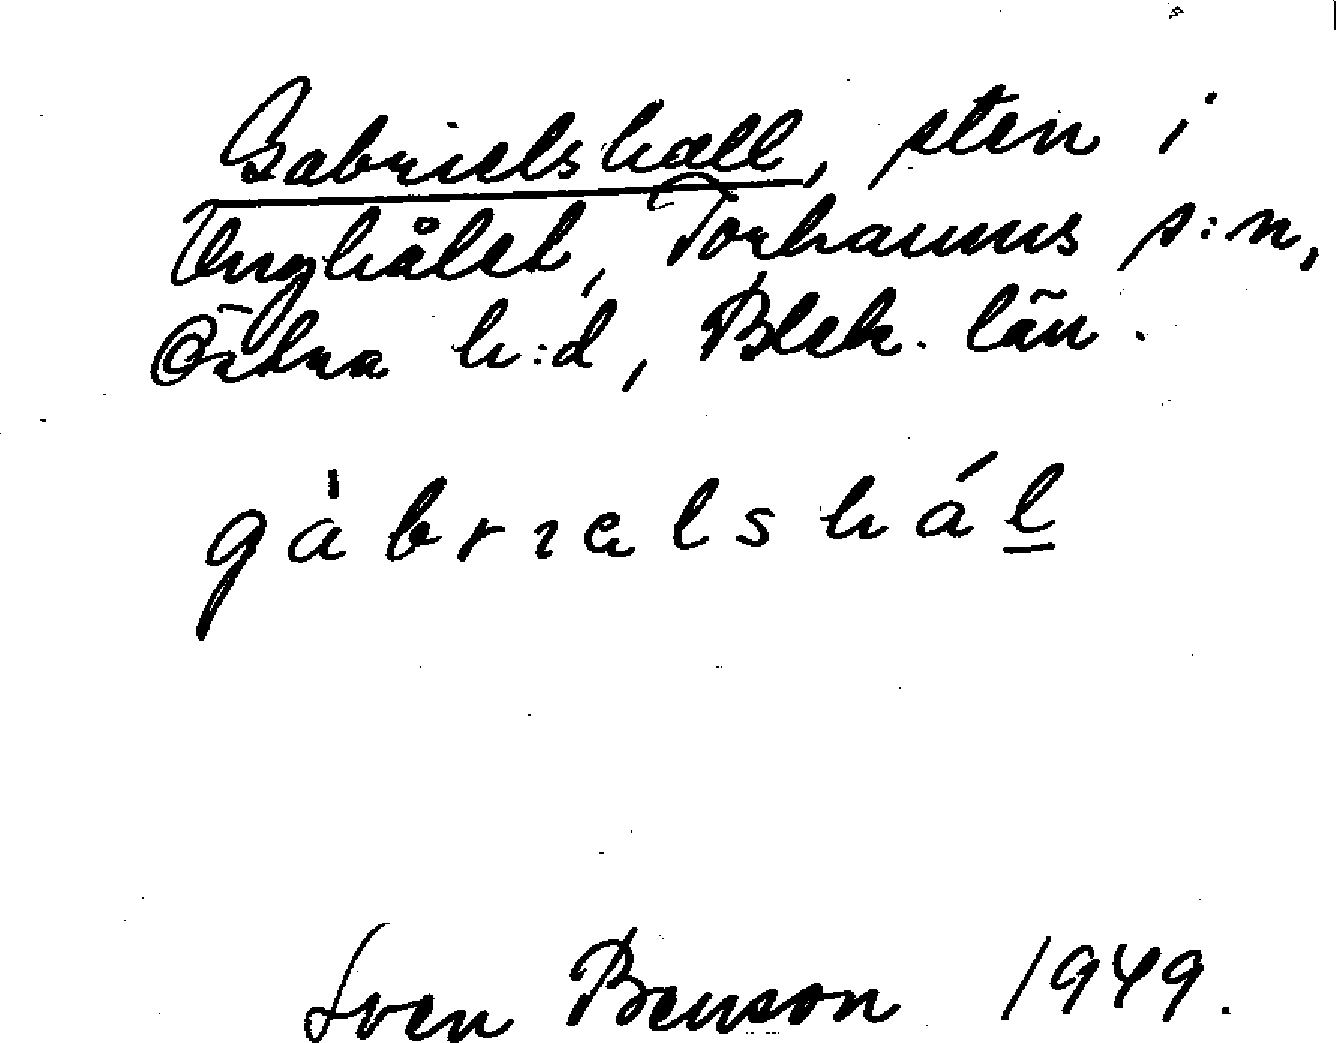 Gabrielshall, sten i
Unghålet, Torhamns s:n,
Östra h:d, Blek. län.
gàbrıelshál
Sven Benson 1949.